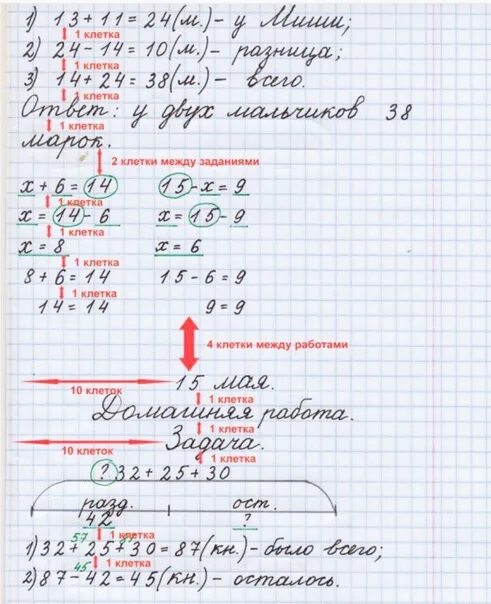 1) 13 + 11 = 24 (м.) - у Миши;
1 клетка
2) 24 - 14 = 10 (м.) - разница;
1 клетка
3) 14 + 24 = 38 (м.) - всего.
1 клетка
Ответ: у двух мальчиков 38
1 клетка
марок.
2 клетки между заданиями
x + 6 = 14 15 - x = 9
1 клетка
x = 14 - 6 x = 15 - 9
1 клетка
x = 8 x = 6
1 клетка
8 + 6 = 14 15 - 6 = 9
1 клетка
14 = 14 9 = 9
4 клетки между работами
10 клеток 15 мая.
1 клетка
Домашняя работа.
1 клетка
10 клеток Задача.
1 клетка
? 32 + 25 + 30
разд. ост.
42 ?
1 клетка
57
1) 32 + 25 + 30 = 87 (кн.) - было всего;
45 1 клетка
2) 87 - 42 = 45 (кн.) - осталось.